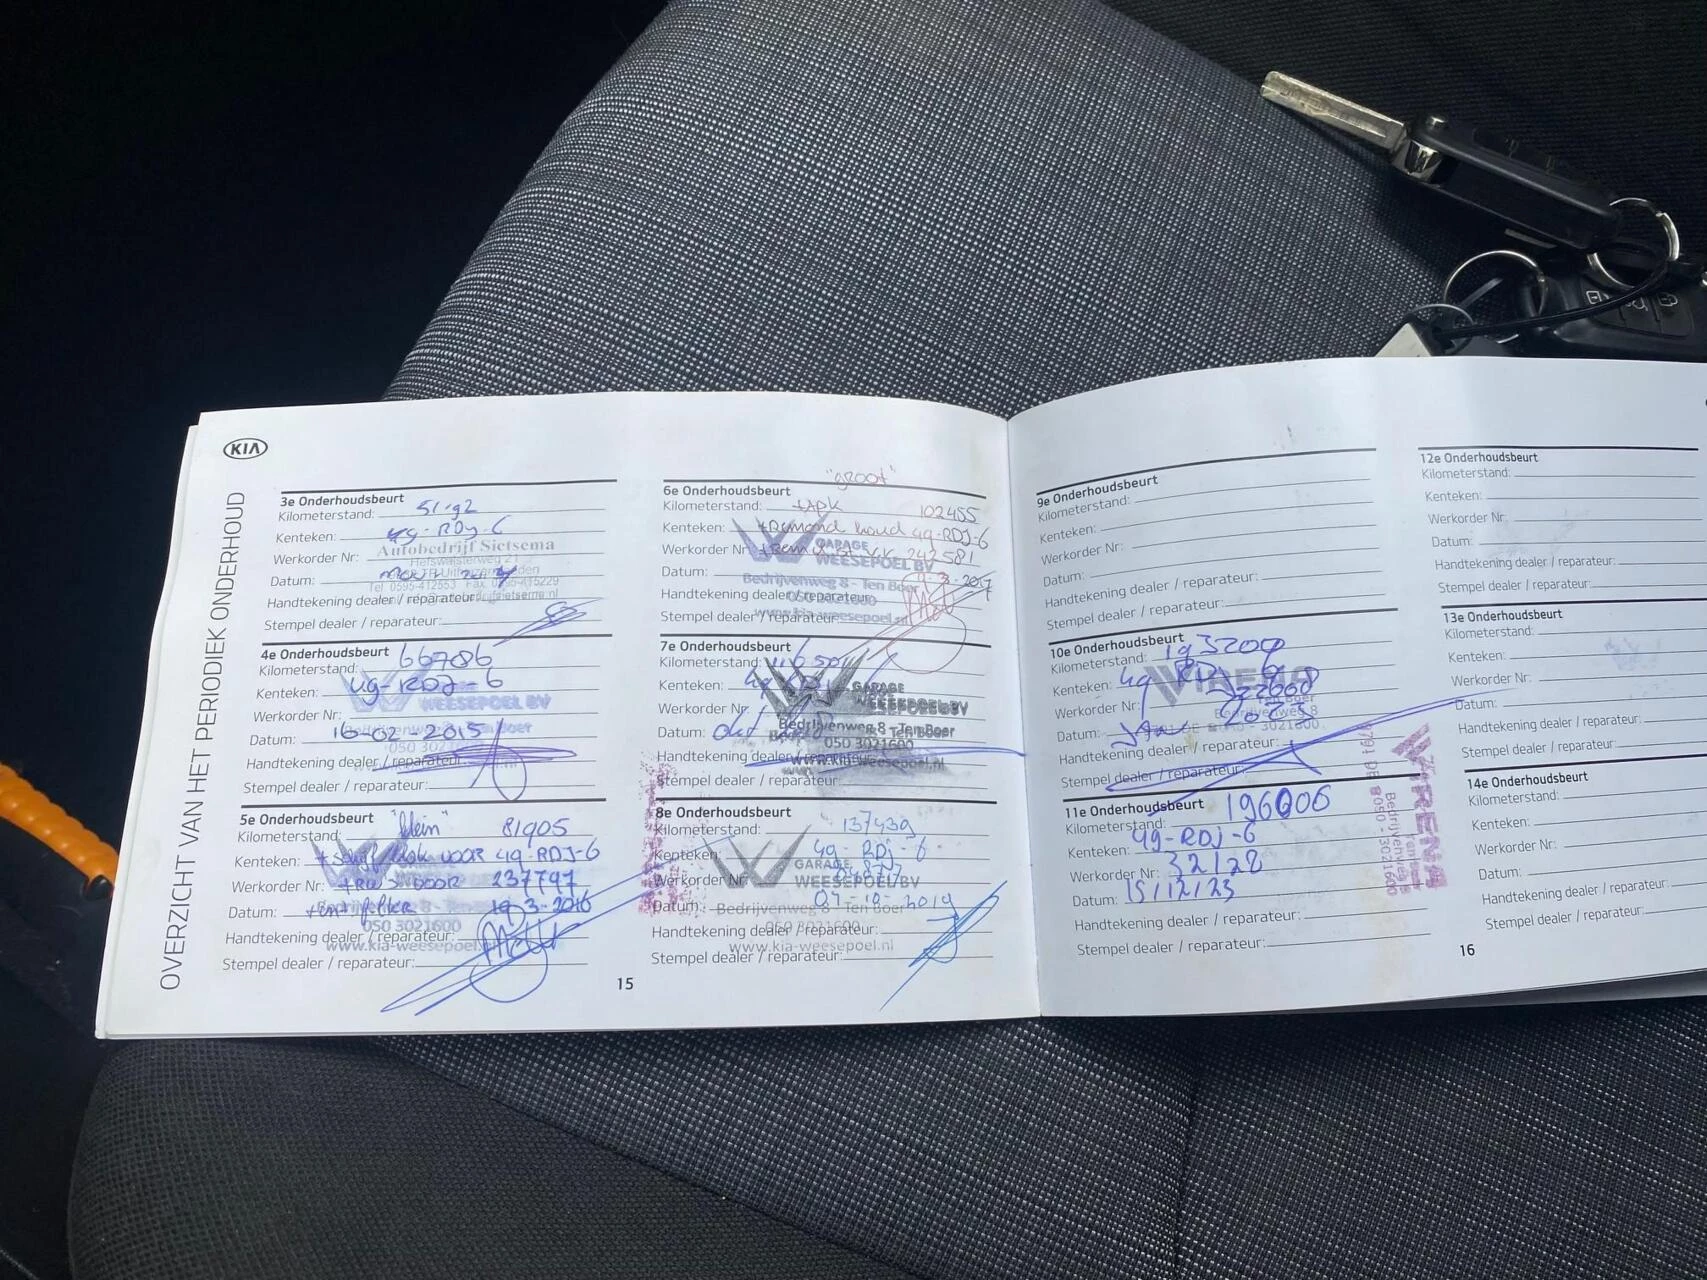 KIA
OVERZICHT VAN HET PERIODIEK ONDERHOUD
3e Onderhoudsbeurt
Kilometerstand:
Kenteken: 49-RDJ-6
Werkorder Nr: Autobedrijf Sietsema
Datum:
Handtekening dealer / reparateur:
Stempel dealer / reparateur:
4e Onderhoudsbeurt
Kilometerstand: 66786
Kenteken: 49-RDJ-6
WEESEPOEL BV
Werkorder Nr:
Datum: 16-02-2015
050 3021600
Handtekening dealer / reparateur:
Stempel dealer / reparateur:
5e Onderhoudsbeurt "klein"
Kilometerstand: 81905
Kenteken: 49-RDJ-6
Werkorder Nr: 237797
Datum: 19-3-2016
050 3021600
Handtekening dealer / reparateur:
www.kia-weesepoel.nl
Stempel dealer / reparateur:
15
"groot"
6e Onderhoudsbeurt
Kilometerstand: +APK 102455
Kenteken: 49-RDJ-6
Werkorder Nr: 242581
GARAGE
WEESEPOEL BV
Datum: 9-3-2017
Bedrijvenweg 8 - Ten Boer
Handtekening dealer / reparateur:
Stempel dealer / reparateur:
www.kia-weesepoel.nl
7e Onderhoudsbeurt
Kilometerstand:
Kenteken:
GARAGE
WEESEPOEL BV
Werkorder Nr:
Datum: okt
Bedrijvenweg 8 - Ten Boer
050 3021600
Handtekening dealer / reparateur:
www.kia-weesepoel.nl
Stempel dealer / reparateur:
8e Onderhoudsbeurt
Kilometerstand: 137439
Kenteken: 49-RDJ-6
GARAGE
WEESEPOEL BV
Werkorder Nr:
Datum: 07-10-2019
Bedrijvenweg 8 - Ten Boer
050 3021600
Handtekening dealer / reparateur:
www.kia-weesepoel.nl
Stempel dealer / reparateur:
9e Onderhoudsbeurt
Kilometerstand:
Kenteken:
Werkorder Nr:
Datum:
Handtekening dealer / reparateur:
Stempel dealer / reparateur:
10e Onderhoudsbeurt
Kilometerstand: 193200
Kenteken:
Werkorder Nr:
Bedrijvenweg 8
Datum: 2023
Handtekening dealer / reparateur:
Stempel dealer / reparateur:
11e Onderhoudsbeurt
Kilometerstand: 196006
Kenteken: 49-RDJ-6
Werkorder Nr: 32128
Datum: 15/12/23
Handtekening dealer / reparateur:
Stempel dealer / reparateur:
Bedrijvenweg 8
050 - 3021600
16
12e Onderhoudsbeurt
Kilometerstand:
Kenteken:
Werkorder Nr:
Datum:
Handtekening dealer / reparateur:
Stempel dealer / reparateur:
13e Onderhoudsbeurt
Kilometerstand:
Kenteken:
Werkorder Nr:
Datum:
Handtekening dealer / reparateur:
Stempel dealer / reparateur:
14e Onderhoudsbeurt
Kilometerstand:
Kenteken:
Werkorder Nr:
Datum:
Handtekening dealer / reparateur:
Stempel dealer / reparateur: